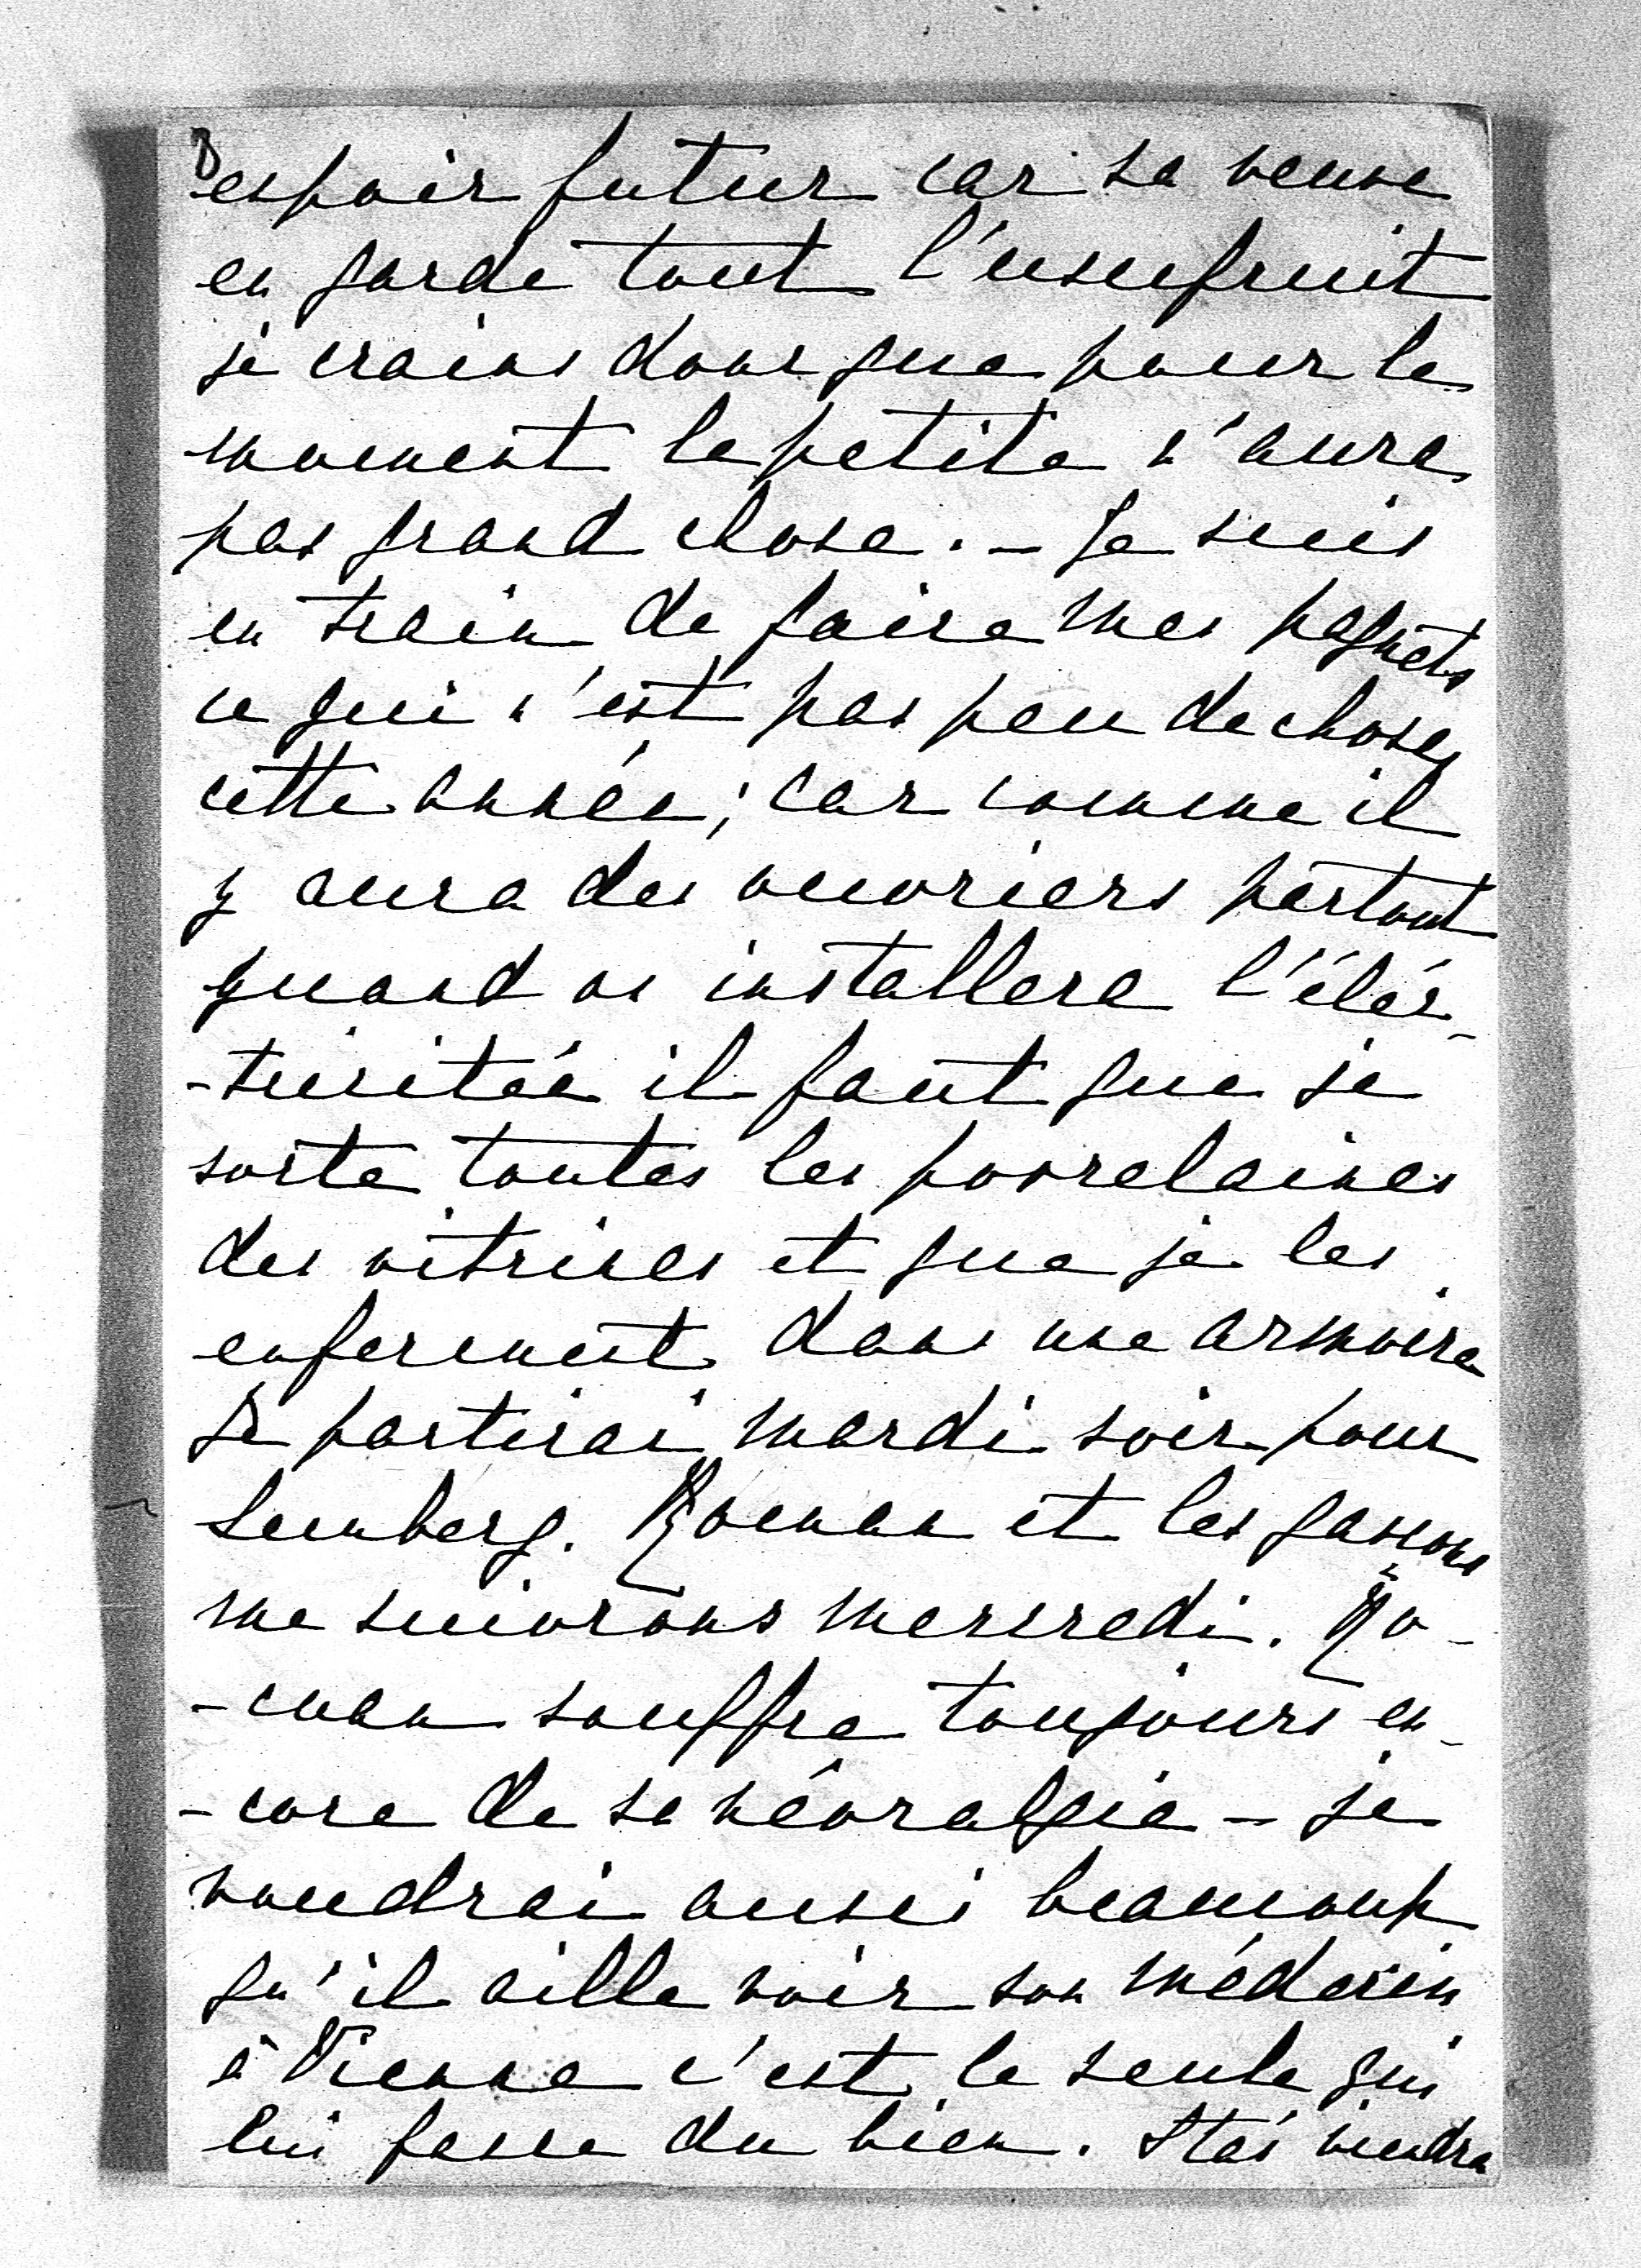 espoir futur car sa veuve
en garde tout l'usufruit
je crains donc que pour le
moment la petite n'aura
pas grand chose. - Je suis
en train de faire mes paquets
ce qui n'est pas peu de chose
cette année; car comme il
y aura des ouvriers partout
quand on installera l'élec-
-tricitée il faut que je
sorte toutes les porcelaines
des vitrines et que je les
enferment dans une armoire
Je partirai mardi soir pour
Lemberg. Roman et les garçons
me suivrons mercredi. Ro-
-man souffre toujours en-
-core de sa névralgie - je
voudrai aussi beaucoup
qu'il aille voir son médecin
à Vienne c'est le seule qui
lui fasse du bien. Stas viendra